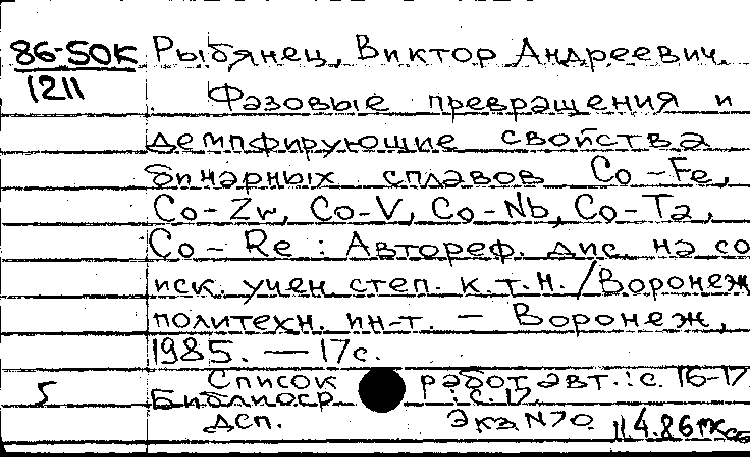 86-50к Рыбянец, Виктор Андреевич.
1211
Фазовые превращения и
демпфирующие свойства
бинарных сплавов Co-Fe,
Co-Zr, Co-V, Co-Nb, Co-Ta,
Co-Re : Автореф. дис. на со
иск. учен. степ. к.т.н. /Воронеж
политехн. ин-т. - Воронеж,
1985. — 17с.
5 Список работ авт.: с. 16-17
Библиогр. : с. 17.
ДСП. Экз N70 11.4.86